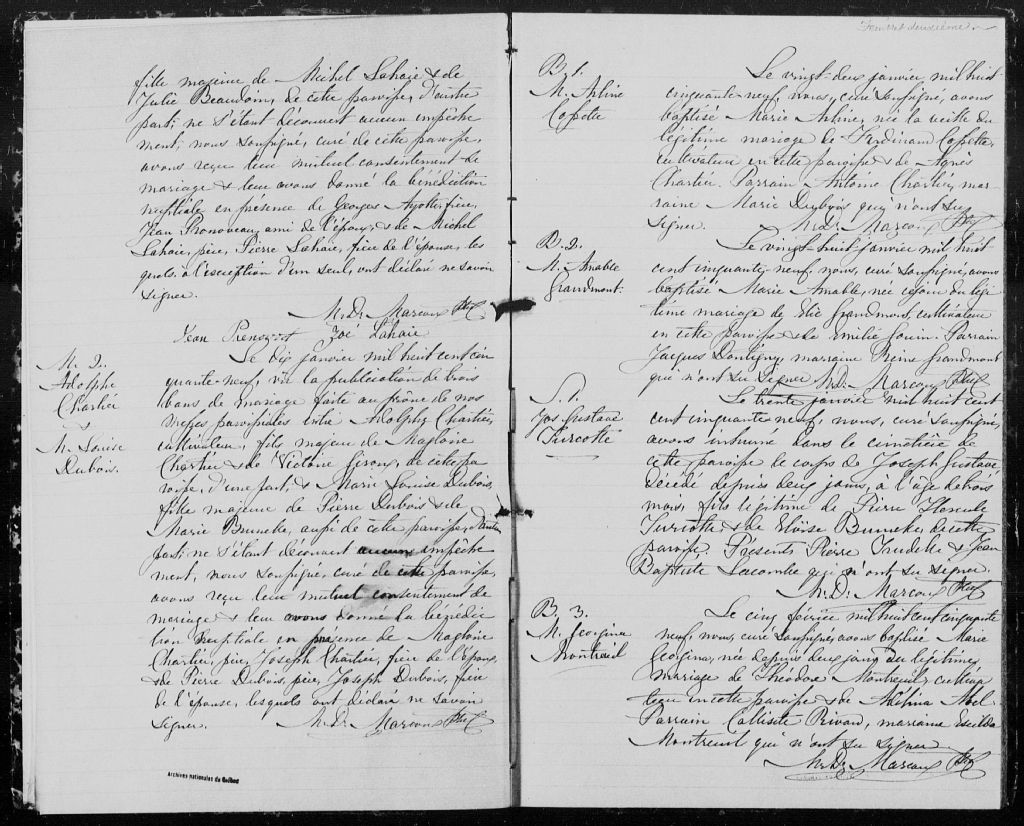 fille majeure de Michel Lahaie & de
Julie Beaudoin, de cette paroisse, d'autre
part; ne s'étant découvert aucun empêche
ment; nous soussigné, curé de cette paroisse,
avons reçu leur mutuel consentement de
mariage & leur avons donné la bénédiction
nuptiale en présence de Georges Ayotte, fieu,
Jean Pronoveau, ami de l'époux, & de Michel
Lahaie, père, Pierre Lahaie, frère de l'épouse, les
quels, à l'exception d'un seul, ont déclaré ne savoir
signer.
M. D. Marcoux Ptre
Jean Prenovost Zoé Lahaie
M. 2.
Adolphe
Chartié
&
M. Louise
Dubois.
Le dix janvier mil huit cent cin
quante-neuf, vu la publication de trois
bans de mariage faite au prône de nos
messes paroissiales entre Adolphe Chartié,
cultivateur, fils majeur de Magloire
Chartié & de Victoire Giroux, de cette pa
roisse, d'une part; & Marie Louise Dubois,
fille majeure de Pierre Dubois & de
Marie Brunelle, aussi de cette paroisse, d'autre
part; ne s'étant découvert aucun empêche
ment, nous soussigné, curé de cette paroisse,
avons reçu leur mutuel consentement de
mariage & leur avons donné la bénédic
tion nuptiale en présence de Magloire
Chartié, père, Joseph Chartié, frère de l'époux,
& de Pierre Dubois, père, Joseph Dubois, frère
de l'épouse, lesquels ont déclaré ne savoir
signer.
M. D. Marcoux Ptre
Archives nationales du Québec
Feuillet deuxième
B. 1.
M. Arline
Cossette
Le vingt-deux janvier mil huit
cinquante-neuf, nous, curé soussigné, avons
baptisé Marie Arline, née la veille du
légitime mariage de Ferdinand Cossette,
cultivateur en cette paroisse & de Agnès
Chartié. Parrain Antoine Chartié, mar-
raine Marie Dubois qui n'ont su
signer. M. D. Marcoux Ptre
B. 2.
M. Amable
Grandmont.
Le vingt-huit janvier mil huit
cent cinquante-neuf, nous, curé soussigné, avons
baptisé Marie Amable, née ce jour du légi
time mariage de Elie Grandmont, cultivateur
en cette paroisse & de Emilie Gouin. Parrain
Jacques Dontigny, marraine Reine Grandmont
qui n'ont su signer M. D. Marcoux Ptre
S. 1.
Jos. Gustave
Turcotte
Le trente janvier mil huit cent
cent cinquante neuf, nous, curé soussigné,
avons inhumé dans le cimetière de
cette paroisse le corps de Joseph Gustave,
décédé depuis deux jours, à l'âge de trois
mois, fils légitime de Pierre Hercule
Turcotte & de Eloïse Brunelle, de cette
paroisse. Présents Pierre Trudelle & Jean
Baptiste Lacombe qui n'ont su signer.
M. D. Marcoux Ptre
B. 3.
M. Georgina
Montreuil
Le cinq février mil huit cent cinquante
neuf, nous, curé soussigné, avons baptisé Marie
Georgina, née depuis deux jours du légitime
mariage de Théodore Montreuil, cultiva
teur en cette paroisse & de Adelina Abel.
Parrain Calliste Rivard, marraine Exilda
Montreuil qui n'ont su signer
M. D. Marcoux Ptre